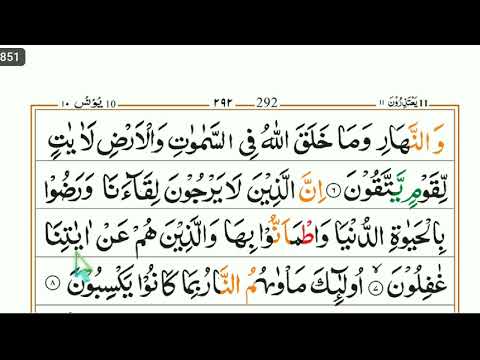 851
يَعْتَذِرُوْنَ ١١ 11
٢٩٢ 292
يُوْنُسْ ١٠ 10
وَالنَّهَارِ وَمَا خَلَقَ اللّٰهُ فِى السَّمٰوٰتِ وَالْاَرْضِ لَاٰيٰتٍ
لِّقَوْمٍ يَّتَّقُوْنَ ۝٦ اِنَّ الَّذِيْنَ لَا يَرْجُوْنَ لِقَآءَنَا وَرَضُوْا
بِالْحَيٰوةِ الدُّنْيَا وَاطْمَاَنُّوْا بِهَا وَالَّذِيْنَ هُمْ عَنْ اٰيٰتِنَا
غٰفِلُوْنَ ۝٧ اُولٰٓئِكَ مَاْوٰىهُمُ النَّارُ بِمَا كَانُوْا يَكْسِبُوْنَ ۝٨